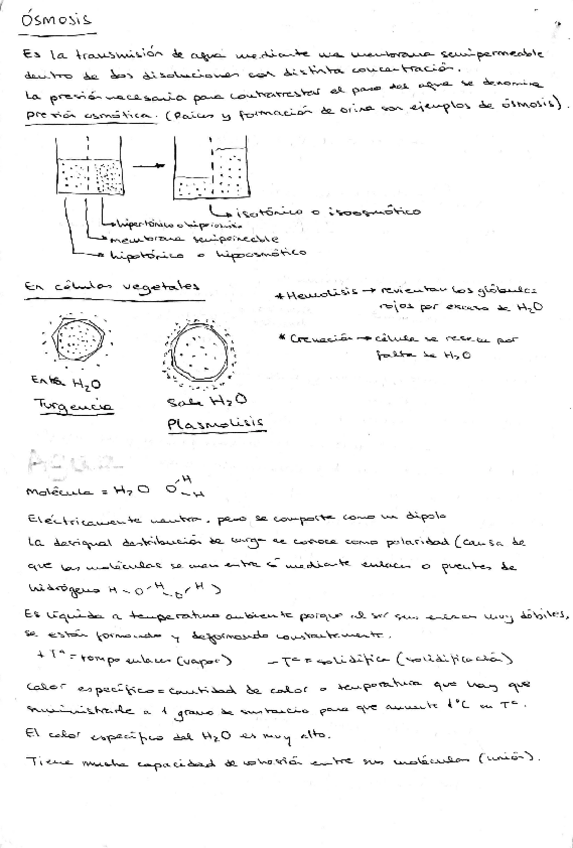 ÓSMOSIS
Es la transmisión de agua mediante una membrana semipermeable
dentro de dos disoluciones con distinta concentración.
La presión necesaria para contrarrestar el paso del agua se denomina
presión osmótica. (Raíces y formación de orina son ejemplos de ósmosis).
isotónico o isoosmótico
hipertónico o
membrana semipermeable
hipotónico o hipoosmótico
En células vegetales
* Hemolisis → revientan los glóbulos
rojos por exceso de H2O
* Crenación → célula se reseca por
falta de H2O
Entra H2O
Turgencia
Sale H2O
Plasmolisis
Agua
Molécula = H2O O H H
Eléctricamente neutra, pero se comporta como un dipolo
La desigual distribución de carga se conoce como polaridad (causa de
que las moléculas se unan entre sí mediante enlaces o puentes de
hidrógeno H-O-H O H)
Es líquida a temperatura ambiente porque al ser sus enlaces muy débiles,
se están formando y deformando constantemente.
+ Tª = rompo enlaces (vapor) - Tª = solidifica (solidificación)
Calor específico = cantidad de calor o temperatura que hay que
suministrarle a 1 gramo de sustancia para que aumente 1°C su Tª.
El calor específico del H2O es muy alto.
Tiene mucha capacidad de cohesión entre sus moléculas (unión).